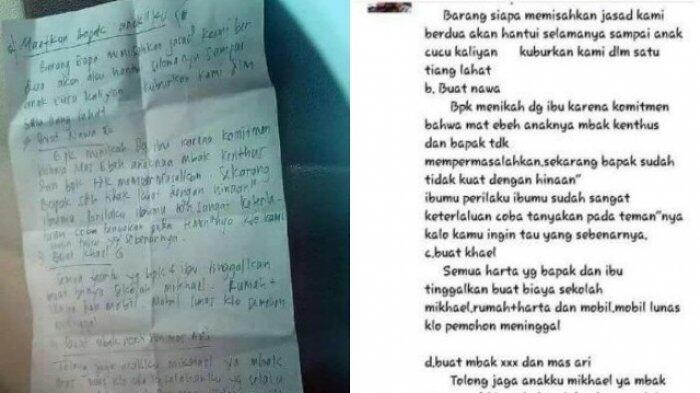 a) Maafkan bapak anakku
Barang siapa memisahkan jasad kami ber
dua akan
anak cucu kaliyan kuburkan kami dlm
satu tiang lahat
Buat Nawa
Bpk menikah dg ibu karena komitmen
bahwa mas Ebah anaknya mbak Kenthus
dan bpk tdk mempermasalahkan sekarang
Bapak sdh tidak kuat dengan hinaan"
ibumu perilaku ibumu sdh sangat keterla-
luan coba tanyakan pada temannya klo kamu
ingin tau yg sebenarnya.
Buat khael
Semua harta yg bpk + ibu tinggalkan
buat biaya sekolah mikhael. Rumah +
harta dan mobil. Mobil lunas klo pemohon
meninggal
buat mbak dan mas Ari
Tolong jaga anakku mikhael ya mbak
mas
Barang siapa memisahkan jasad kami
berdua akan hantui selamanya sampai anak
cucu kaliyan kuburkan kami dlm satu
tiang lahat
b, Buat nawa
Bpk menikah dg ibu karena komitmen
bahwa mat ebeh anaknya mbak kenthus
dan bapak tdk
mempermasalahkan,sekarang bapak sudah
tidak kuat dengan hinaan"
ibumu perilaku ibumu sudah sangat
keterlaluan coba tanyakan pada teman"nya
kalo kamu ingin tau yang sebenarnya,
c,buat khael
Semua harta yg bapak dan ibu
tinggalkan buat biaya sekolah
mikhael,rumah+harta dan mobil,mobil lunas
klo pemohon meninggal
d,buat mbak xxx dan mas ari
Tolong jaga anakku mikhael ya mbak